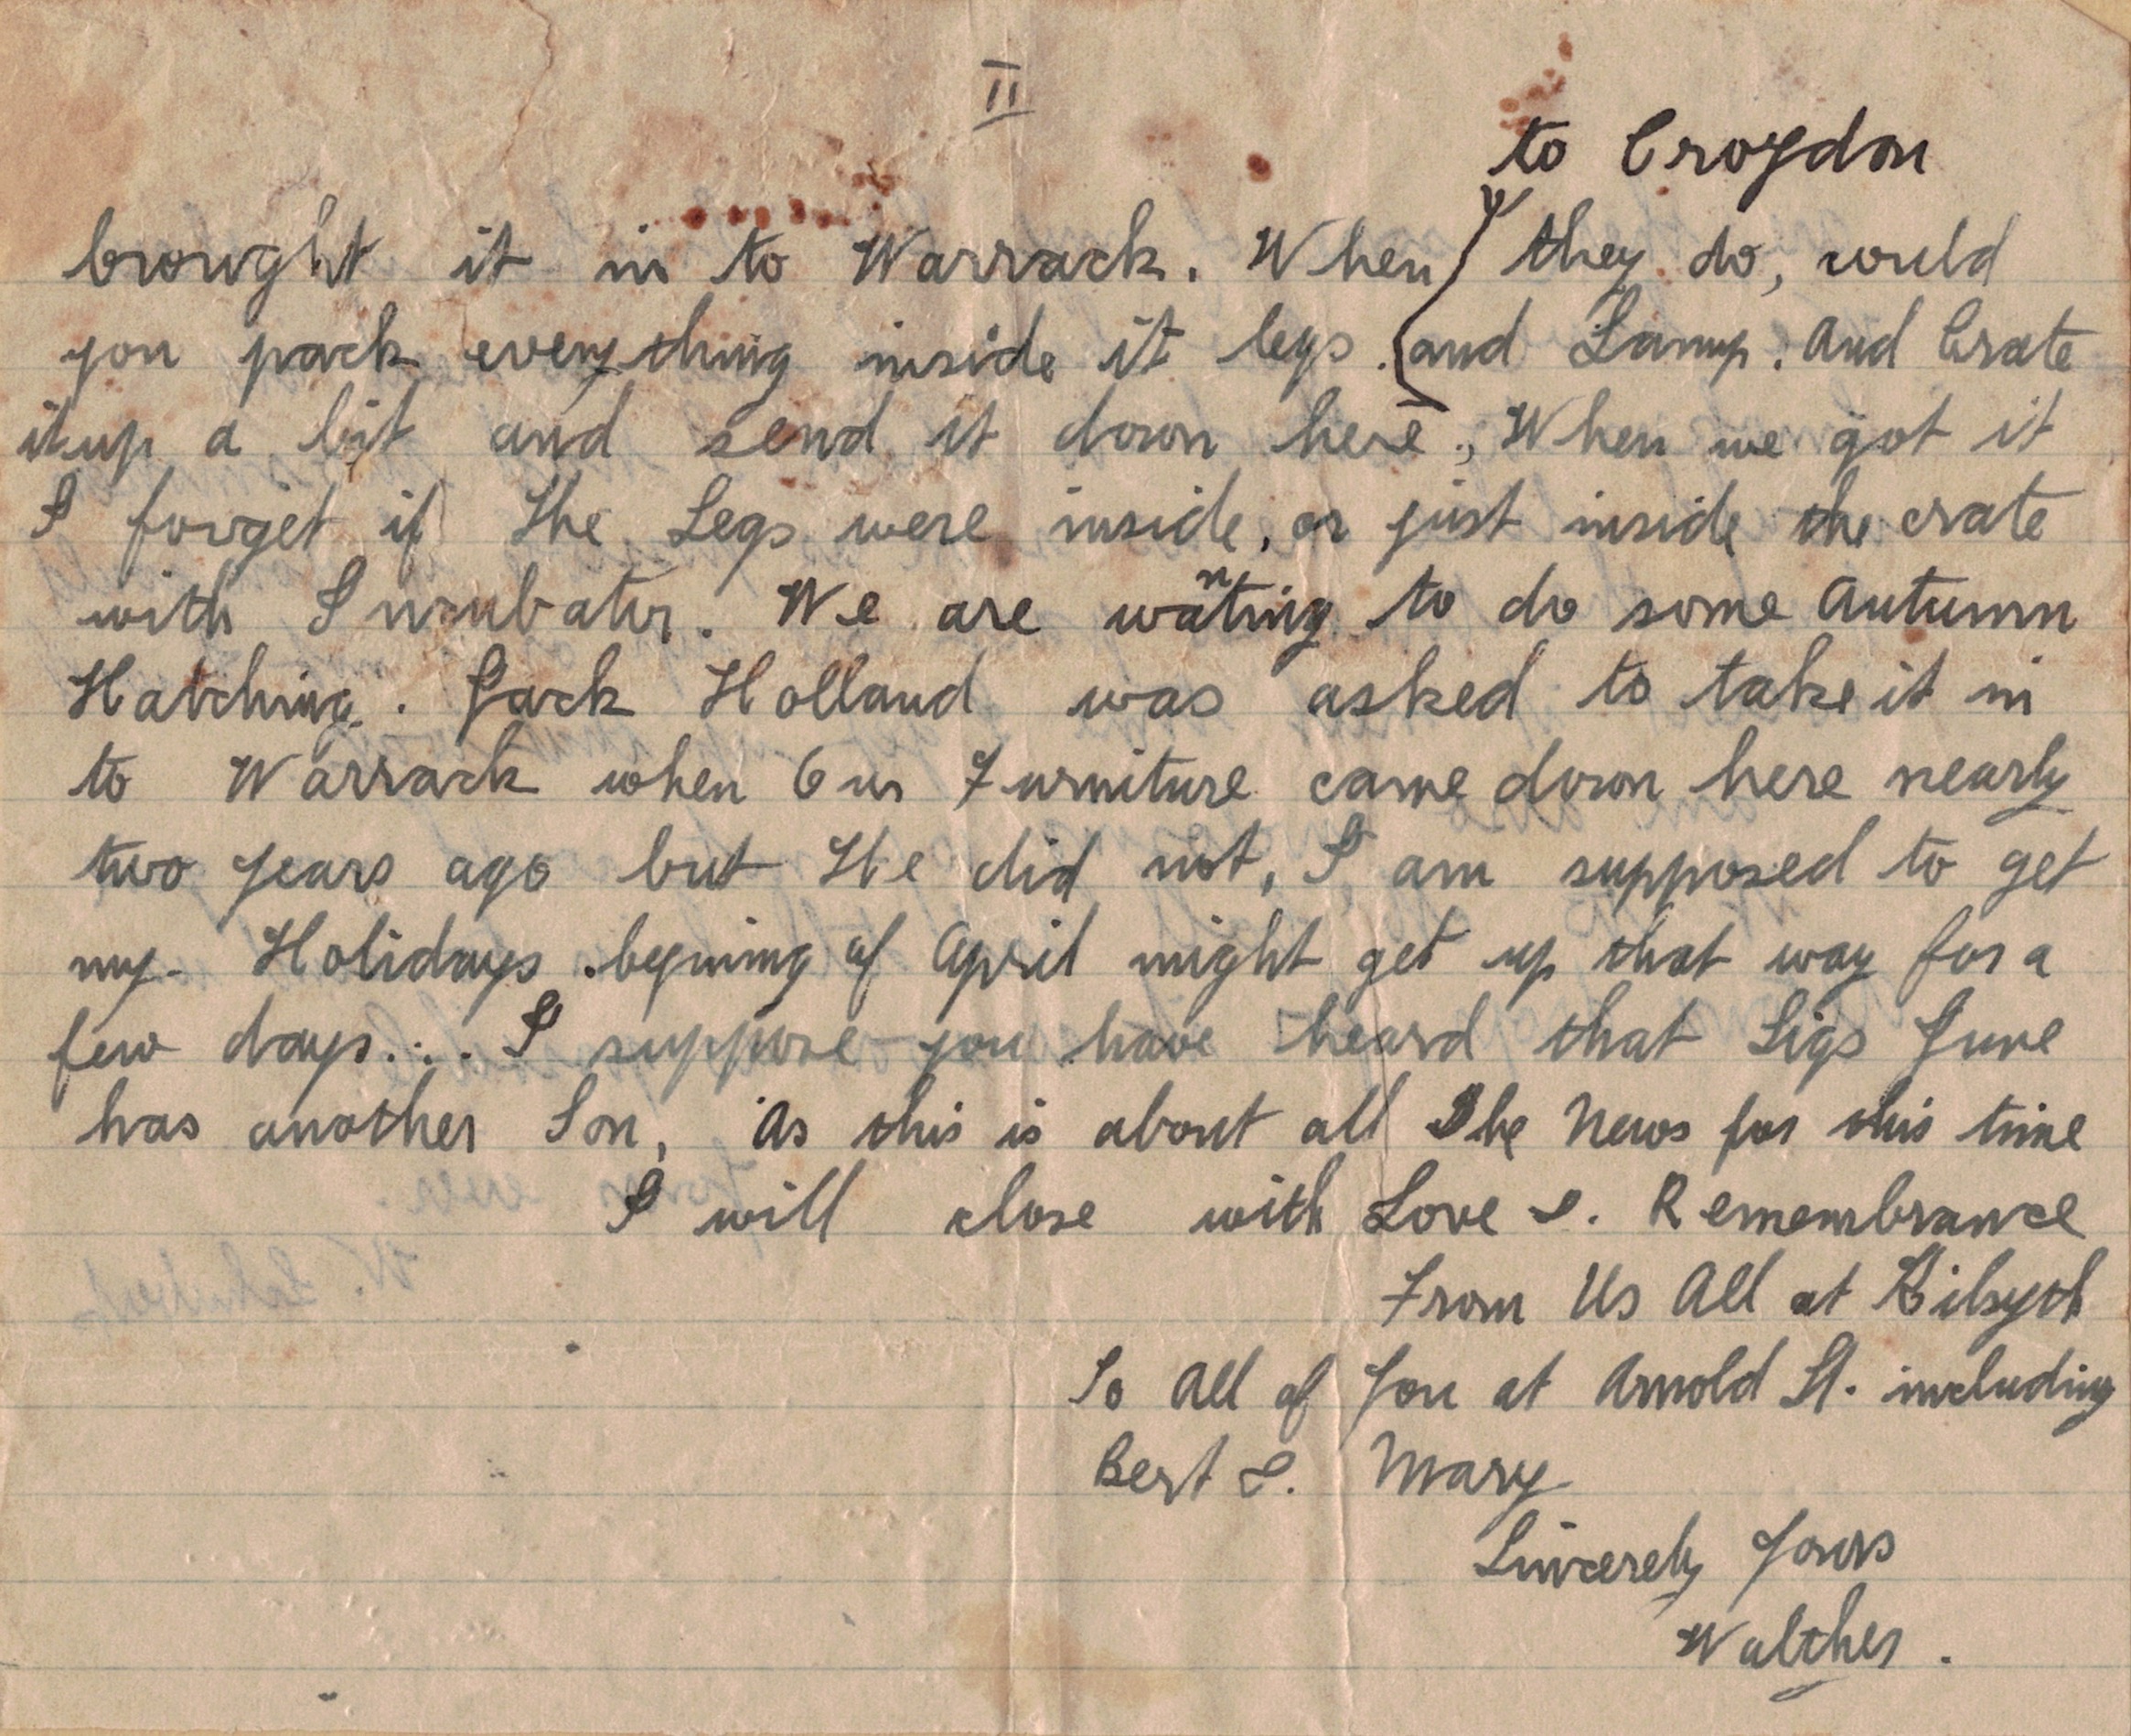 II
to Croydon
brought it in to Warrack. When they do, would
you pack everything inside it legs. and Lamp. And Crate
it up a bit and send it down here., When we got it
I forget if The Legs were inside, or just inside the crate
with Incubator. We are wanting to do some Autumn
Hatching. Jack Holland was asked to take it in
to Warrack when Our Furniture came down here nearly
two years ago but He did not, I am supposed to get
my Holidays begining of April might get up that way for a
few days... I suppose you have heard that Sigs June
has another Son, As this is about all The News for this time
I will close with Love &. Remembrance
From Us All at Kilsyth
To All of You at Arnold St. including
Bert &. Mary
Sincerely Yours
Walther.